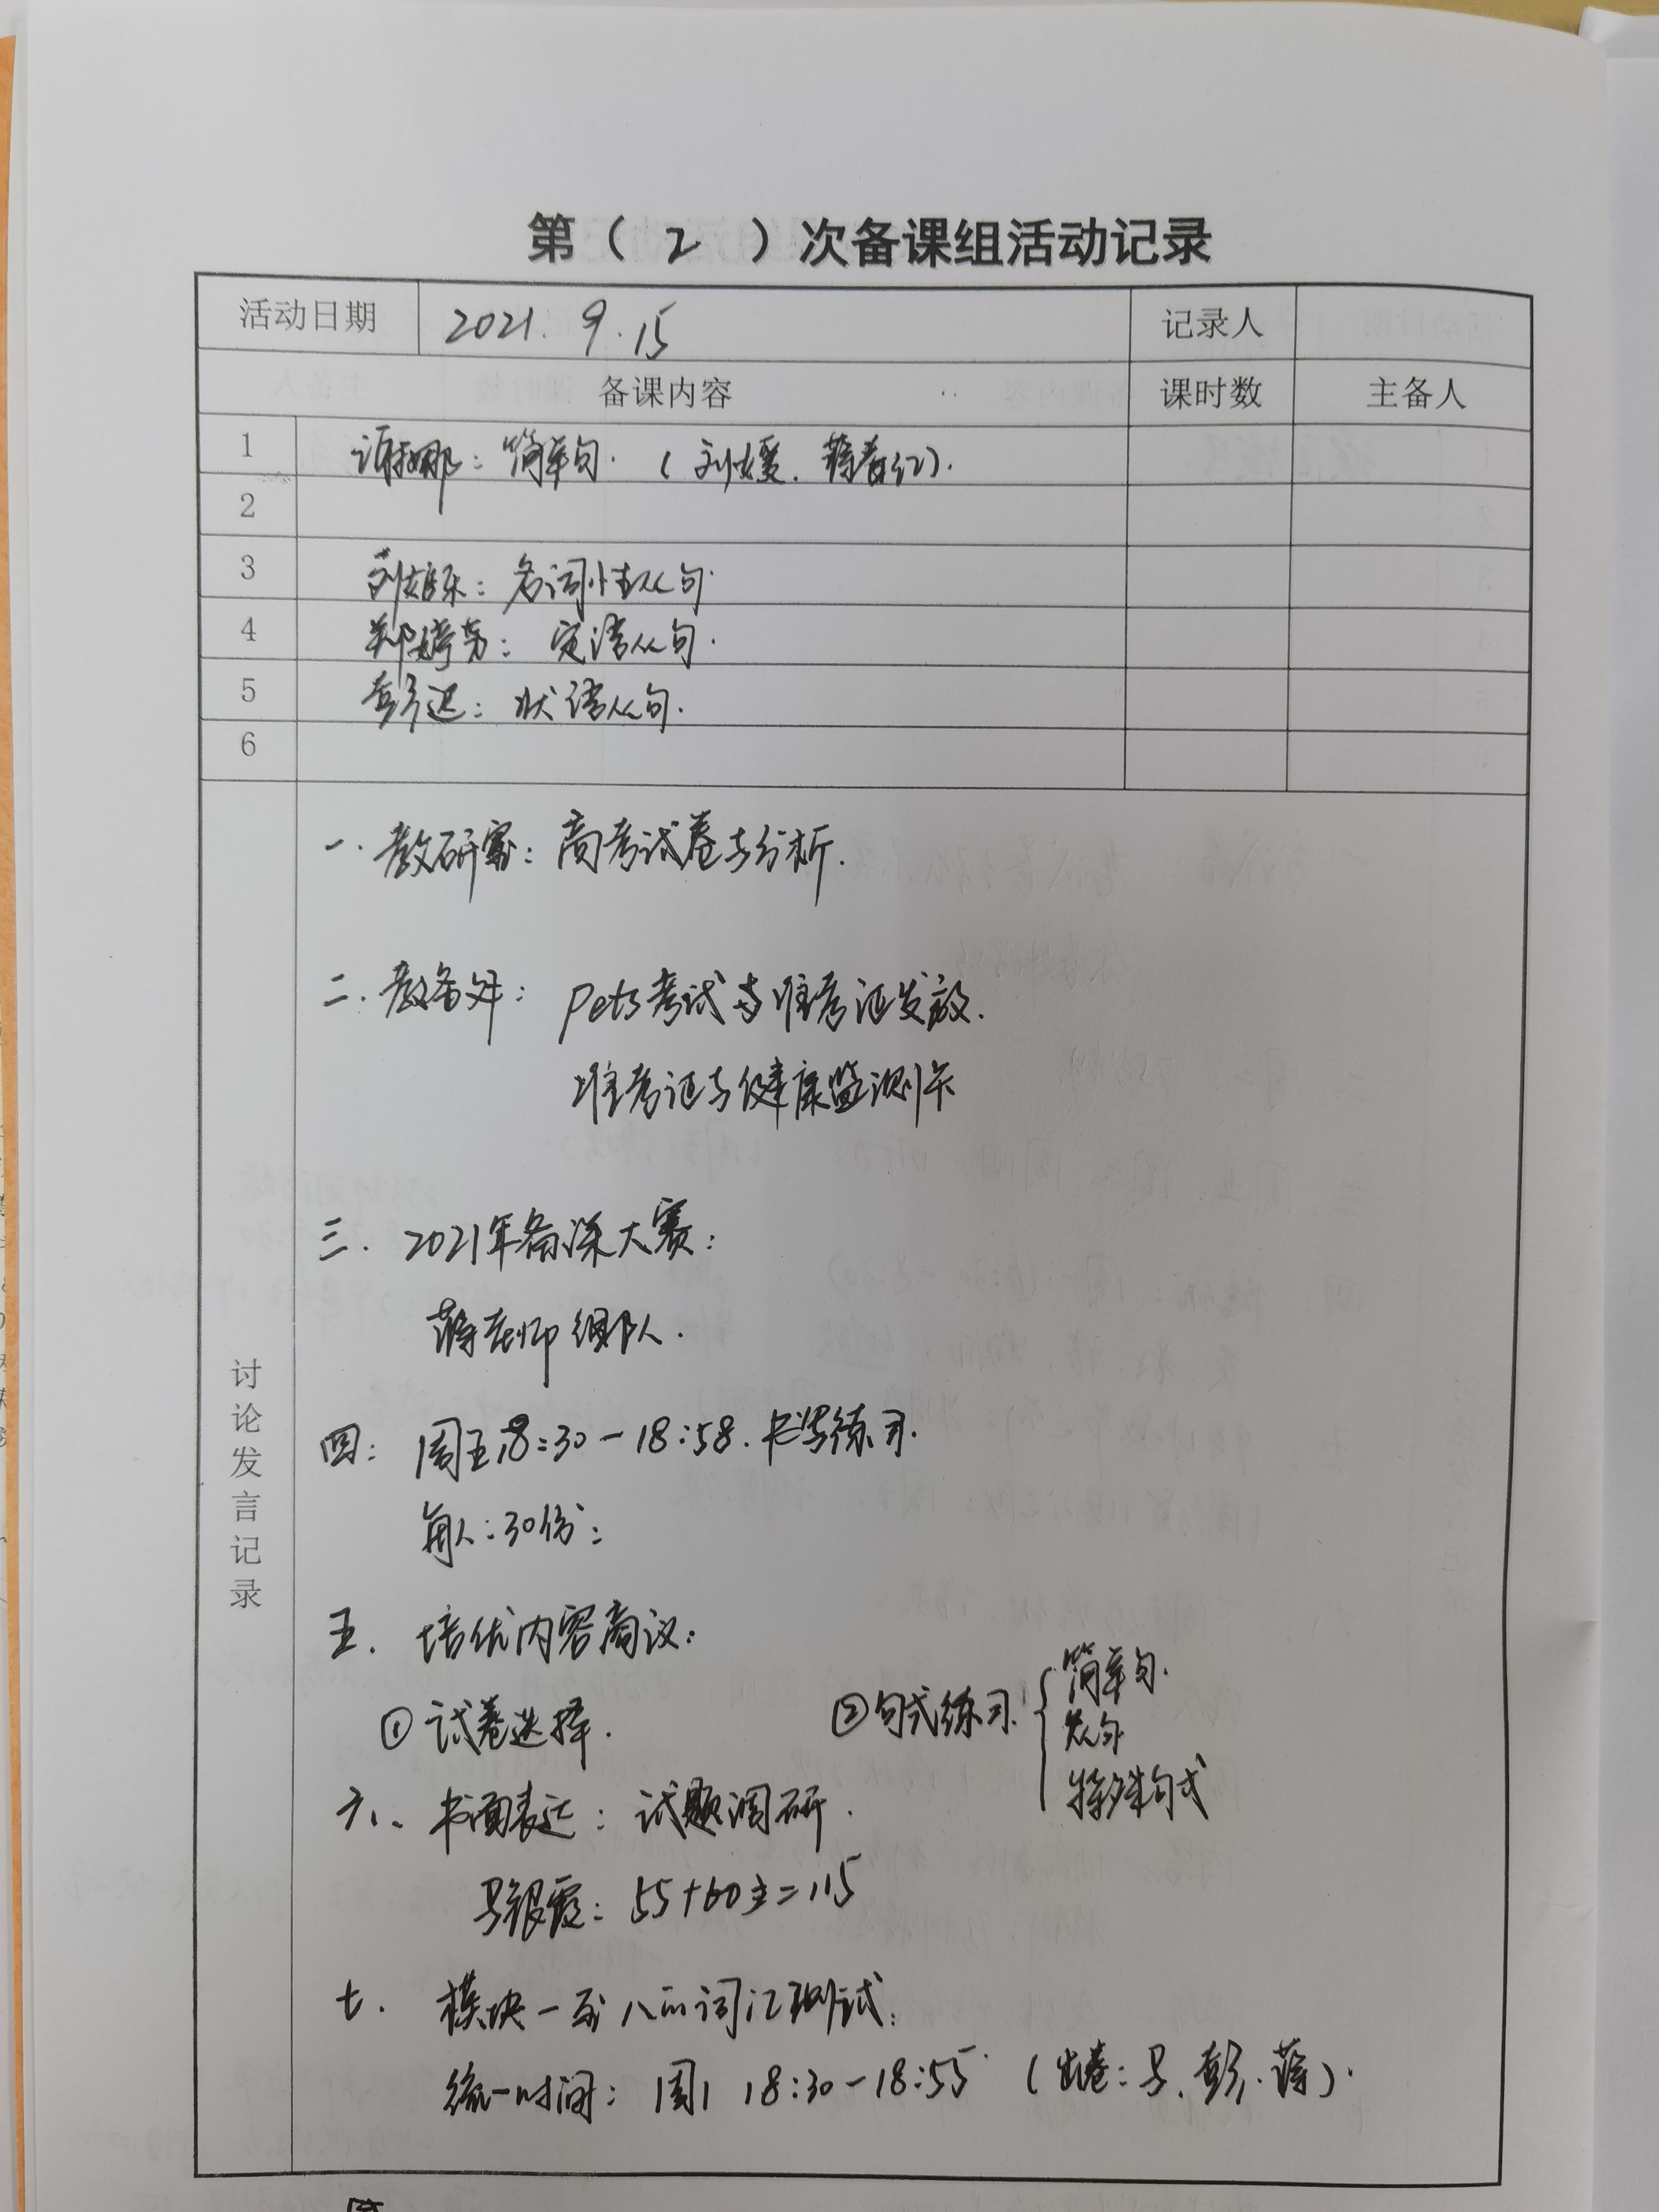 第（ 2 ）次备课组活动记录
活动日期 2021. 9. 15 记录人
备课内容 课时数 主备人
1 谢娜：简单句.（刘媛. 蒋春红）.
2
3 刘雄乐：名词性从句.
4 郑婷芳：定语从句.
5 彭迟：状语从句.
6
讨论发言记录
一. 教研室：高考试卷与分析.
二. 教备组：Pets考试与准考证发放.
准考证与健康监测卡
三. 2021年备课大赛：
蒋老师组队.
四：周五18:30－18:58. 书写练习.
每人：30份：
五. 培优内容商议：
①试卷选择. ②句式练习.
简单句.
从句
特殊句式
六、书面表达：试题调研.
马银霞：55+60主=115
七. 模块一至八的词汇测试：
统一时间：周1 18:30－18:55（出卷：马. 彭. 蒋）.